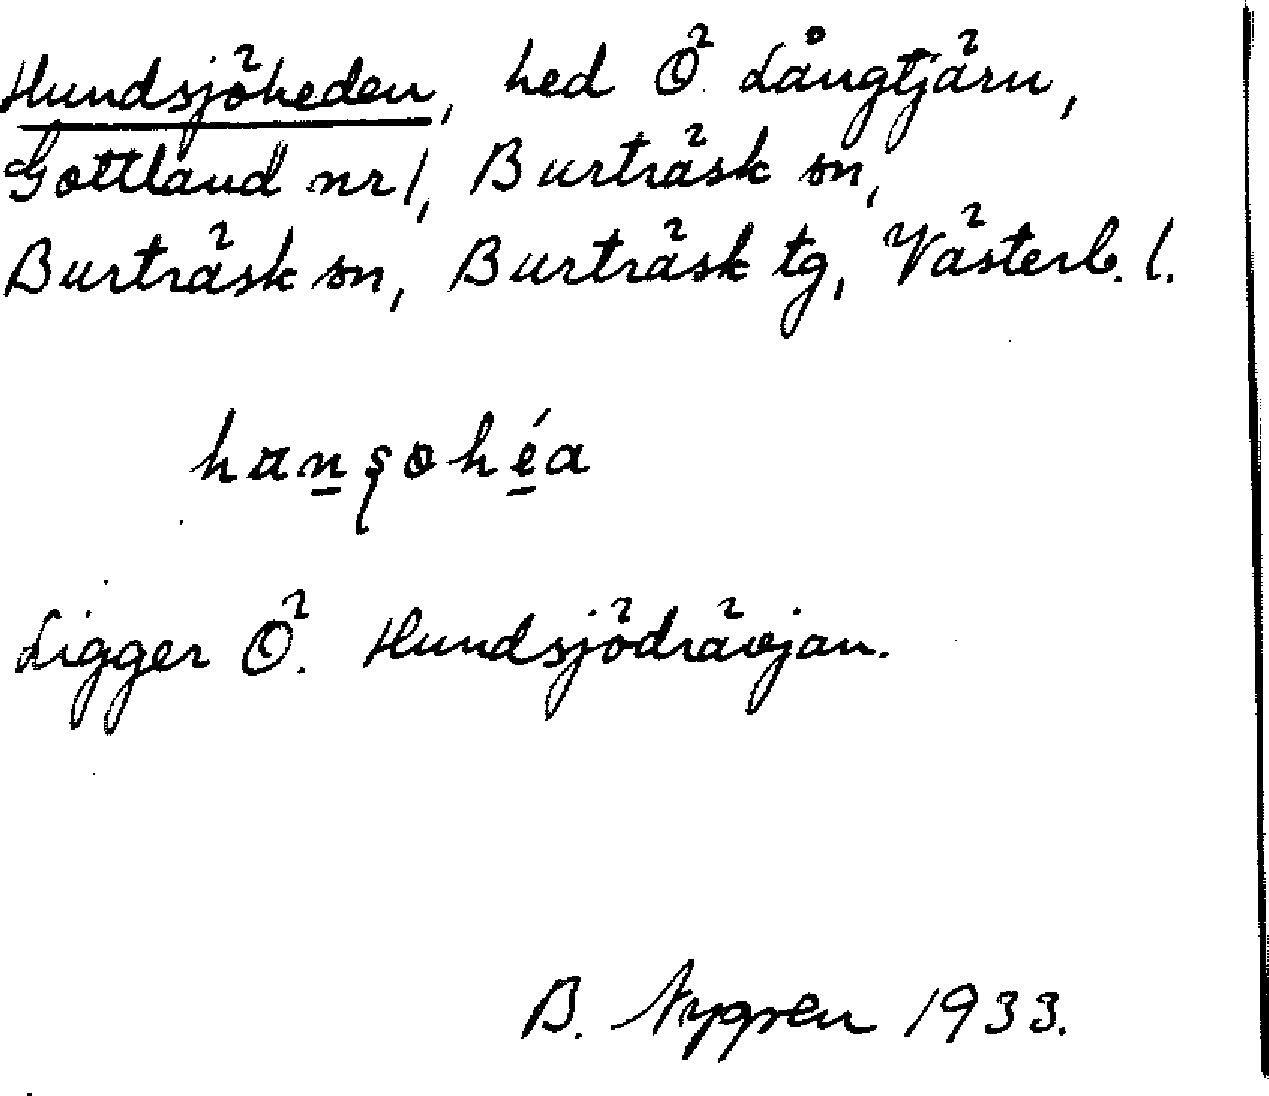 Hundsjöheden, hed Ö. Långtjärn,
Gottland nr 1, Burträsk sn,
Burträsk sn, Burträsk tg, Västerb. l.
hanşohéa
Ligger Ö. Hundsjödrävjan.
B. Nygren 1933.